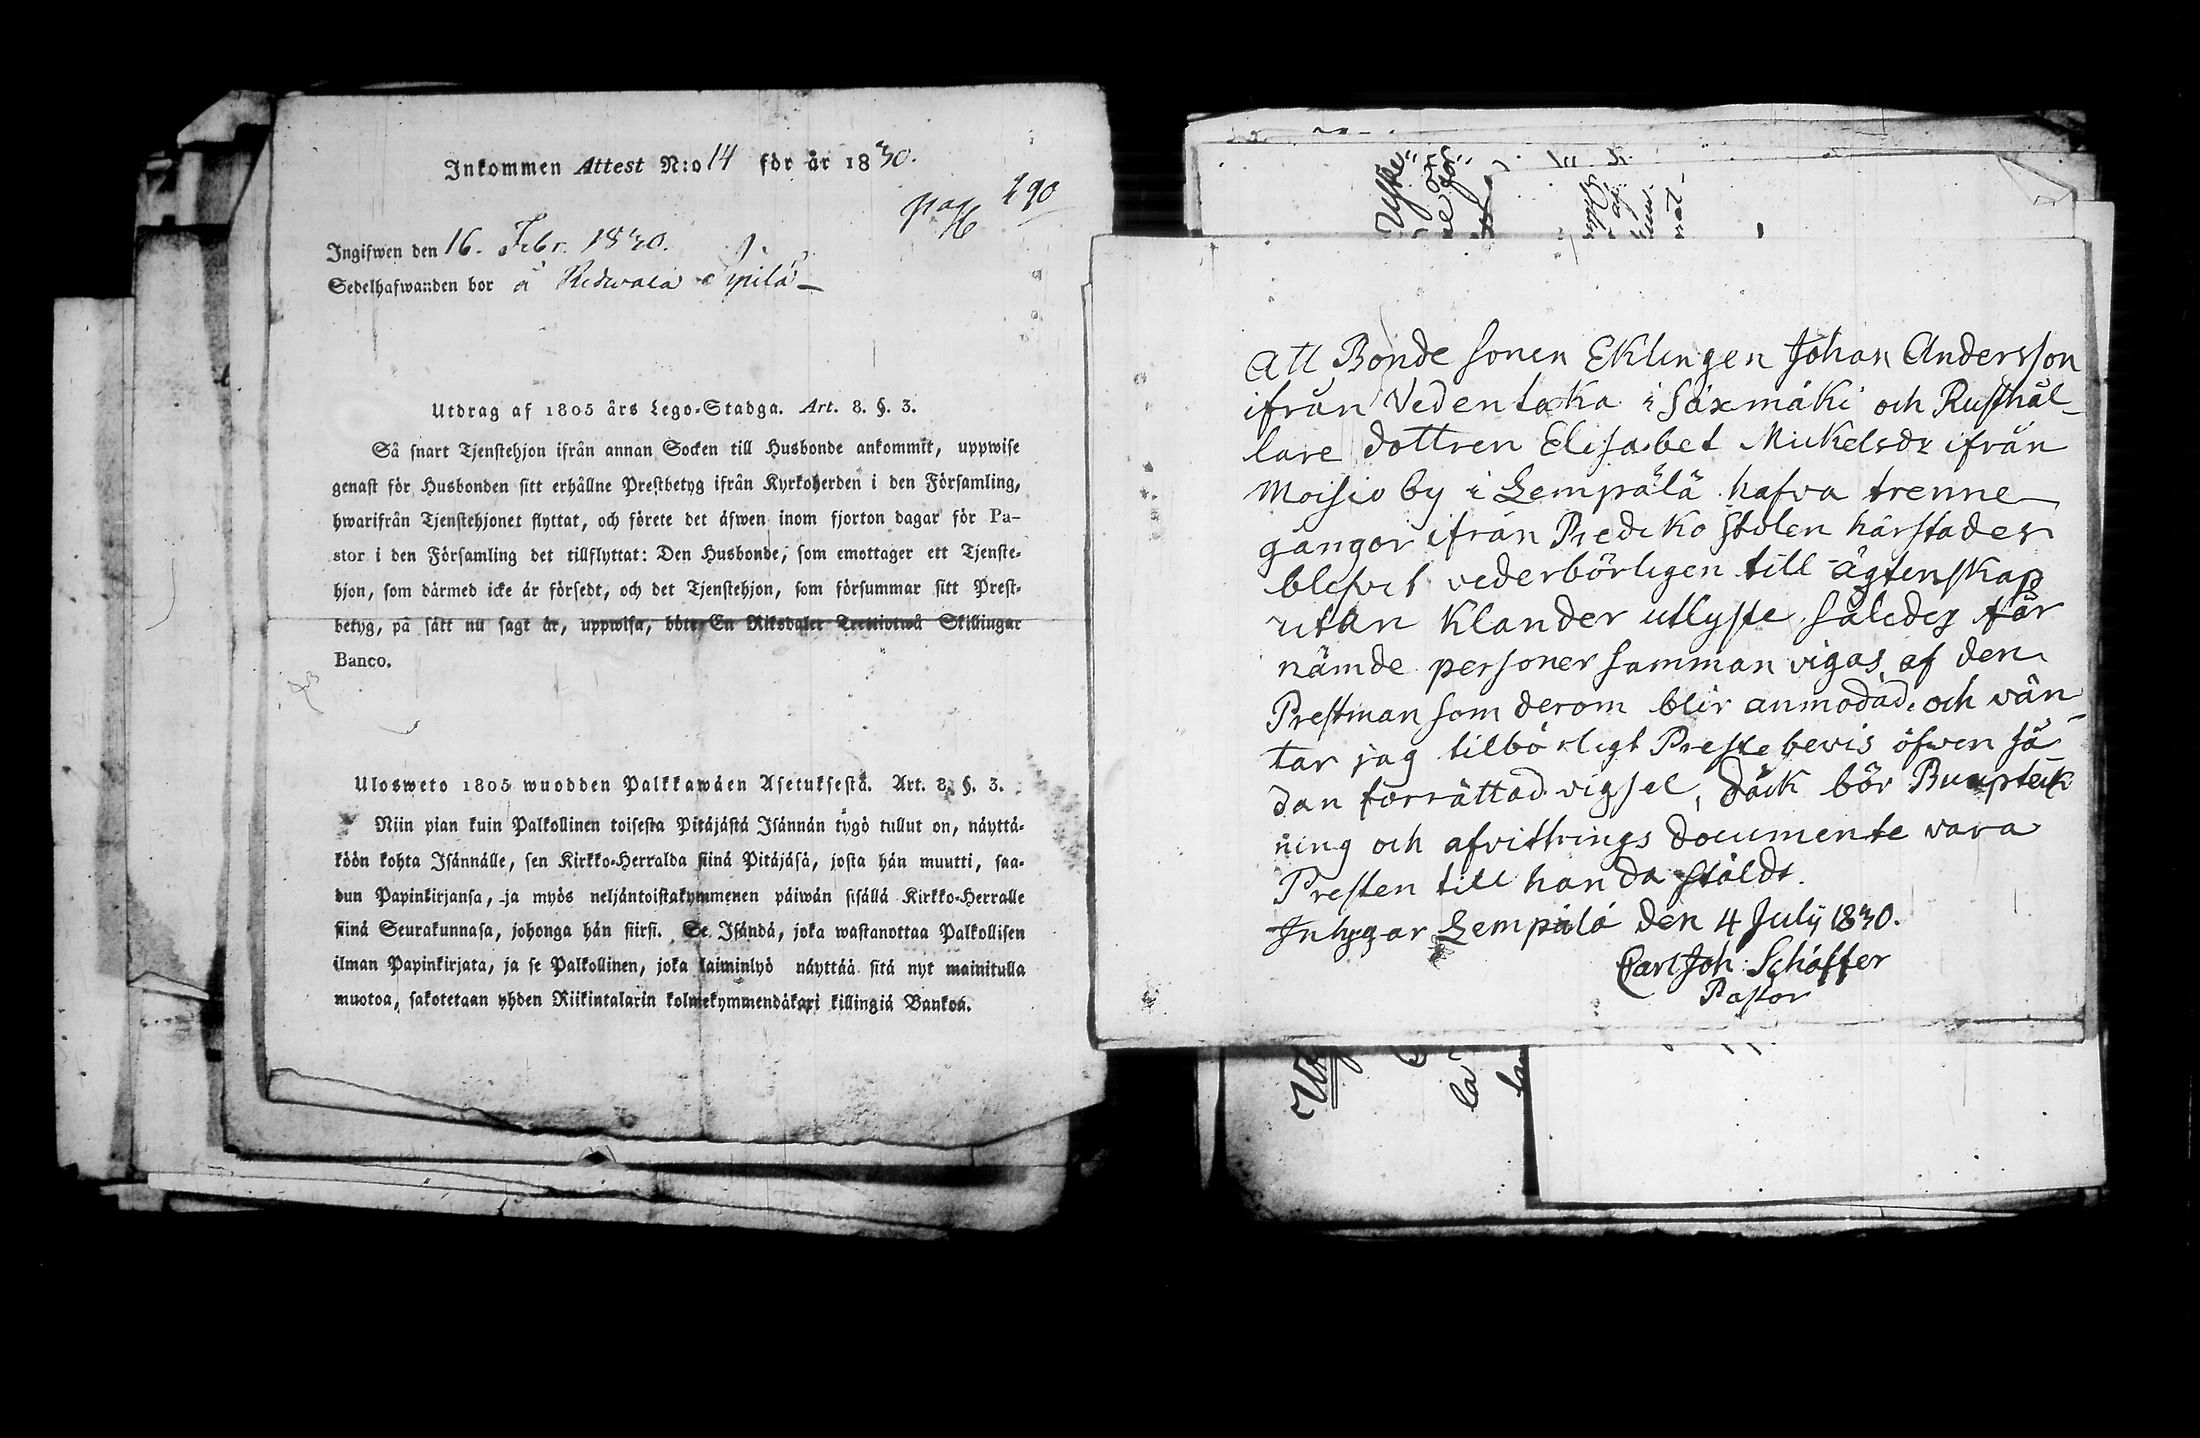 Inkommen Attest N:o 14 för år 1830.
pag 490
Ingifwen den 16. Febr. 1830.
Sedelhafwanden bor å Ridwala
Utdrag af 1805 års Lego-Stadga. Art. 8. §. 3.
Så snart Tjenstehjon ifrån annan Socken till Husbonde ankommit, uppwise
genast för Husbonden sitt erhållne Prestbetyg ifrån Kyrkoherden i den Församling,
hwarifrån Tjenstehjonet flyttat, och förete det äfwen inom fjorton dagar för Pa-
stor i den Församling det tillflyttat: Den Husbonde, som emottager ett Tjenste-
hjon, som därmed icke är försedt, och det Tjenstehjon, som försummar sitt Prest-
betyg, på sätt nu sagt är, uppwisa, böte En Riksdaler Trettiotwå Skillingar
Banco.
Ulosweto 1805 wuodden Palkkawäen Asetuksestä. Art. 8. §. 3.
Niin pian kuin Palkollinen toisesta Pitäjästä Isännän tygö tullut on, näyttä-
köön kohta Isännälle, sen Kirkko-Herralda siinä Pitäjäsä, josta hän muutti, saa-
dun Papinkirjansa, ja myös neljäntoistakymmenen päiwän sisällä Kirkko-Herralle
siinä Seurakunnasa, johonga hän siirsi. Se Isändä, joka wastanottaa Palkollisen
ilman Papinkirjata, ja se Palkollinen, joka laiminlyö näyttää sitä nyt mainitulla
muotoa, sakotetaan yhden Riikintalarin kolmekymmendäkaxi killingiä Bankoa.
Att Bonde sonen Eklingen Johan Andersson
ifrån Vedentaka i Säxmäki och Rusthål-
lare dottren Elisabet Mickelsdr ifrån
Moisio by i Lempälä hafva trenne
gångor ifrån Prediko stolen härstädes
blefvit vederbörligen till ägtenskap
utan klander utlyste, således får
nämde personer samman vigas af den
Prestman som derom blir anmodad, och vän-
tar jag tilbörligt Preste bevis öfwer så
dan förrättad vigsel, däck bör
ning och afvittrings documente vara
Presten till handa stäldt.
Intygar Lempälä den 4 July 1830.
Carl Joh: Schäffer
Pastor